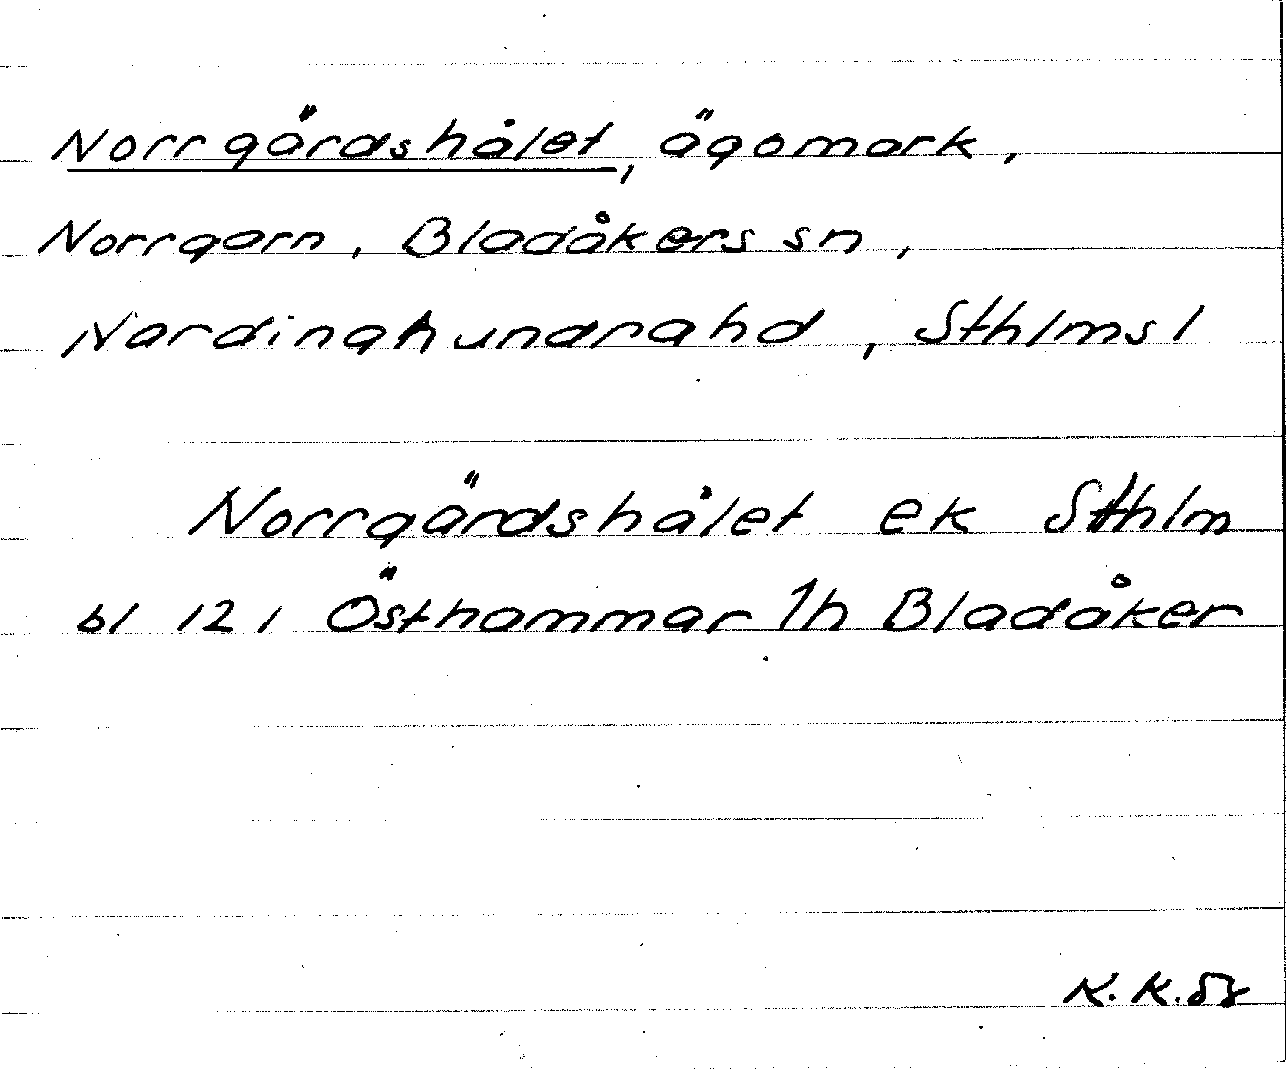 Norrgärdshålet, ägomark,
Norrgarn, Bladåkers sn,
Närdinghundra hd, Sthlms l
Norrgärdshålet ek Sthlm
bl 121 Östhammar 1h Bladåker
K.K.58